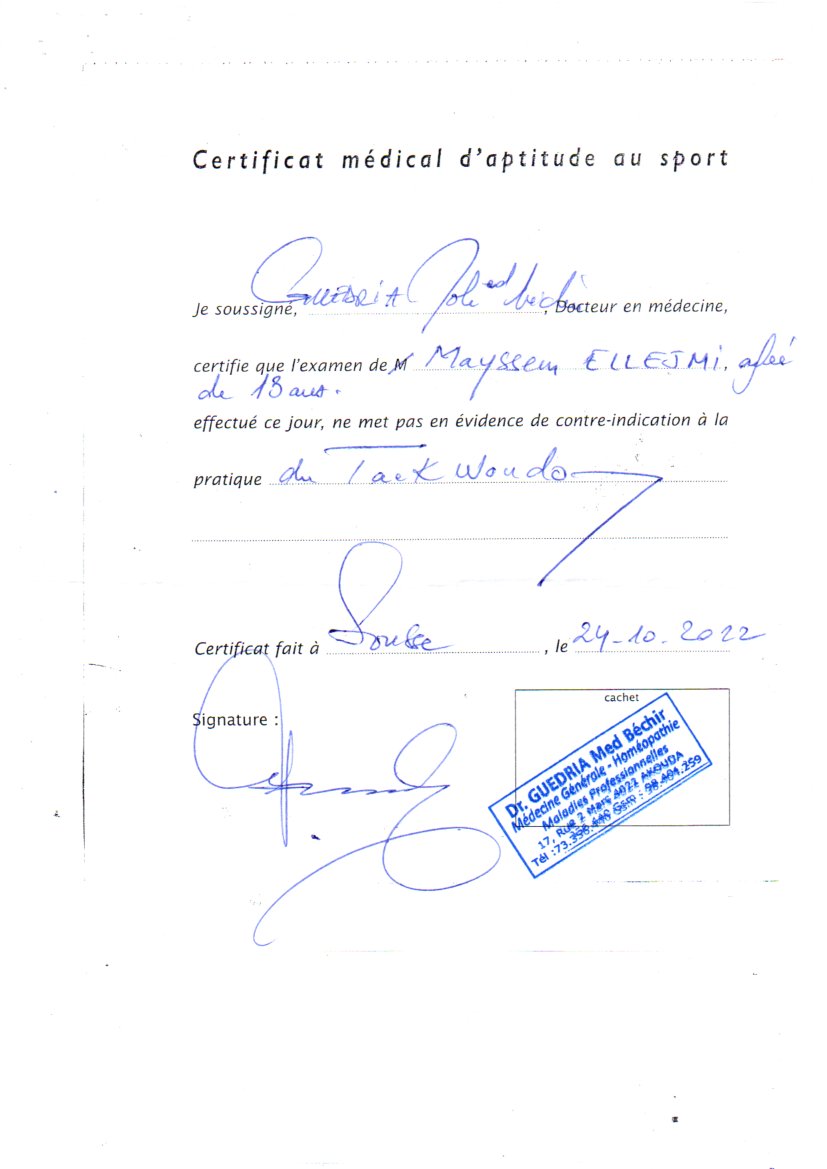 Certificat médical d'aptitude au sport
Je soussigné, GUEDRIA Moh ed Béchir, Docteur en médecine,
certifie que l'examen de M Mayssem ELLEJMI, agée
de 13 ans.
effectué ce jour, ne met pas en évidence de contre-indication à la
pratique du Taek Wondo
Certificat fait à Sousse, le 24-10-2022
Signature :
cachet
Dr. GUEDRIA Med Béchir
Médecine Générale - Homéopathie
Maladies Professionnelles
17, Rue 2 Mars 4022 AKOUDA
Tél : GSM : 98.404.259